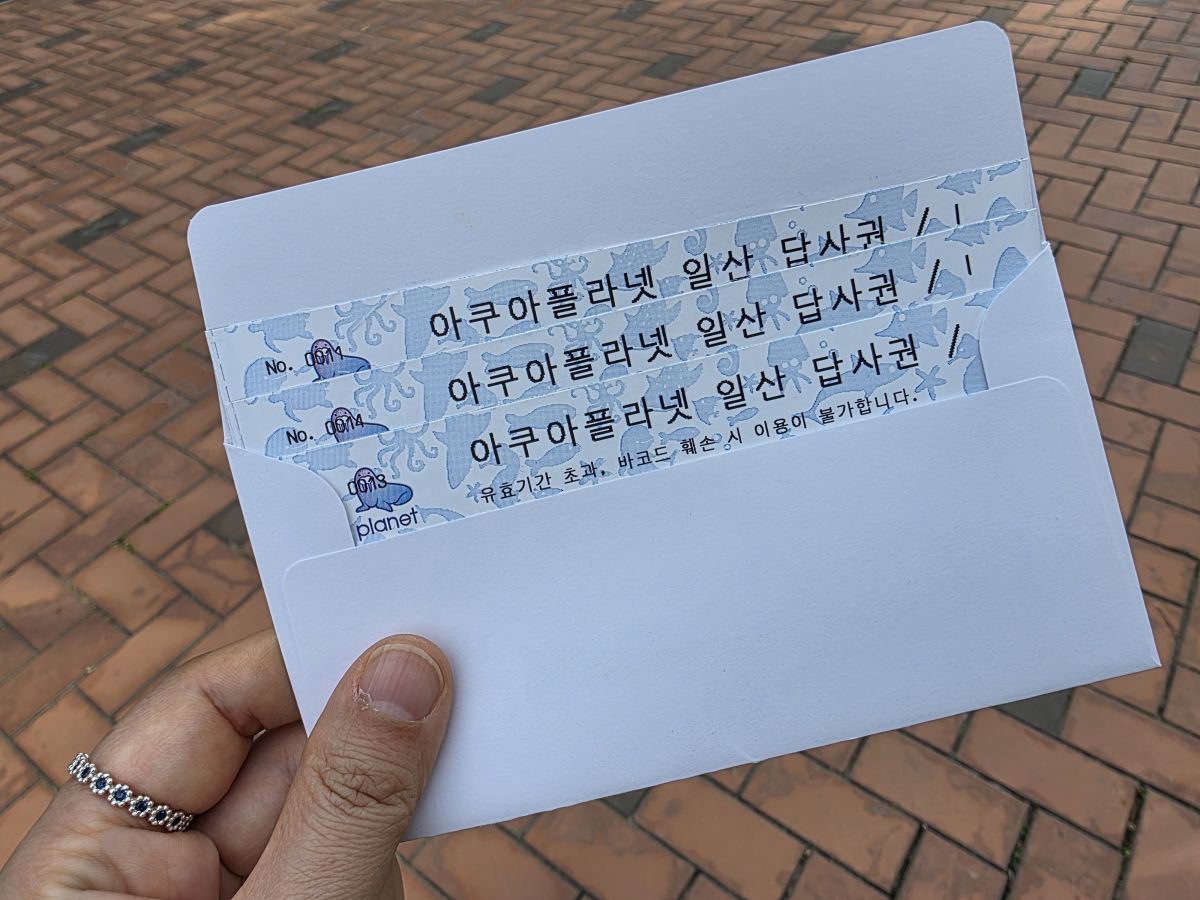 아쿠아플라넷 일산 답사권 /
No. 0011
아쿠아플라넷 일산 답사권 /
No. 0014
아쿠아플라넷 일산 답사권 /
0013
유효기간 초과, 바코드 훼손 시 이용이 불가합니다.
planet